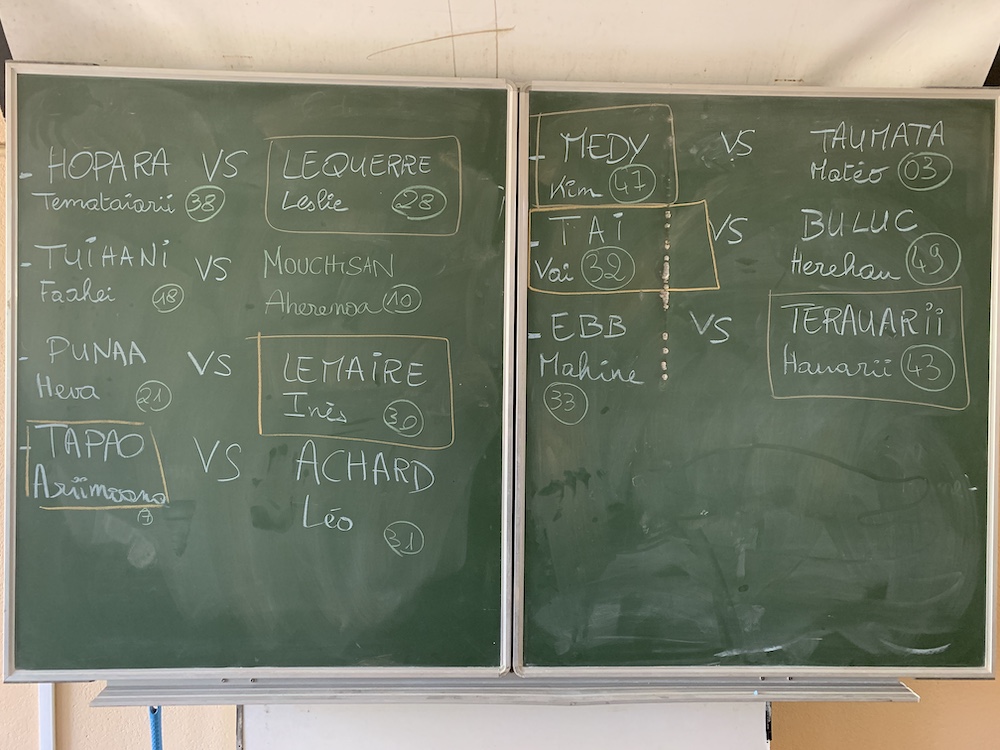 - HOPARA VS LEQUERRE
Temataiarii 38 Leslie 28
- TUIHANI VS MOUCHSAN
Faahei 18 Aherenoa 10
- PUNAA VS LEMAIRE
Heva 21 Inès 30
- TAPAO VS ACHARD
Ariimoana 7 Léo 31
- MEDY VS TAUMATA
Kim 47 Matéo 03
- TAI VS BULUC
Vai 32 Herehau 49
- EBB VS TERAUARII
Mahine 33 Hauarii 43